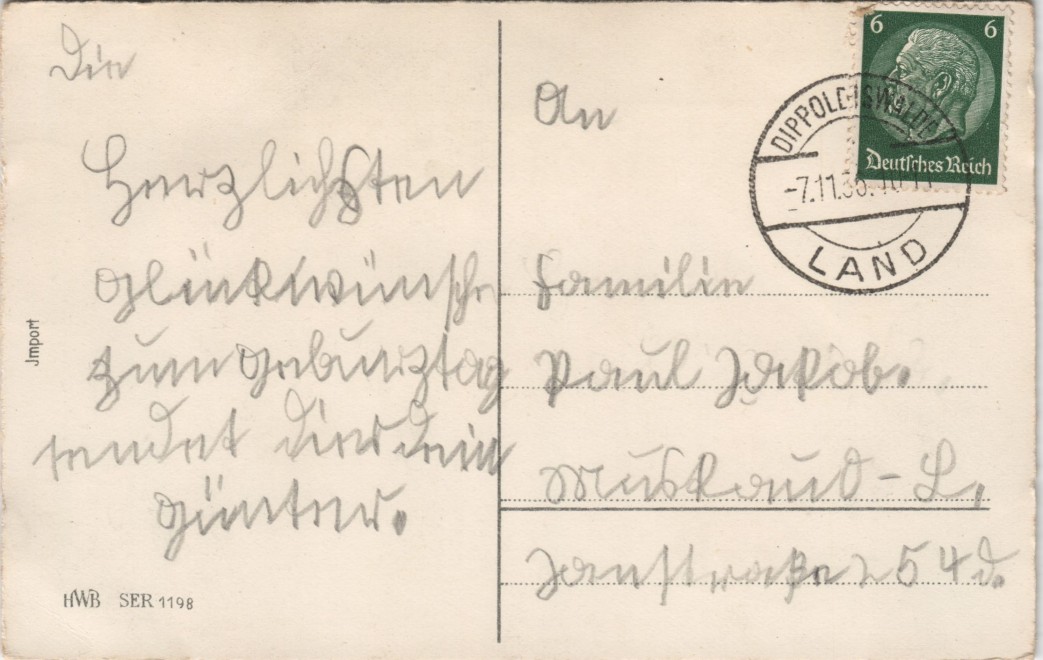 Die
Herzlichsten
Glückwünsche
zum Geburztag
sendet dir dein
Günter.
An
Familie
Paul Jakob.
54 d.
Import
HWB SER 1198
6 6
Deutsches Reich
DIPPOLDISWALDE
-7.11.
LAND